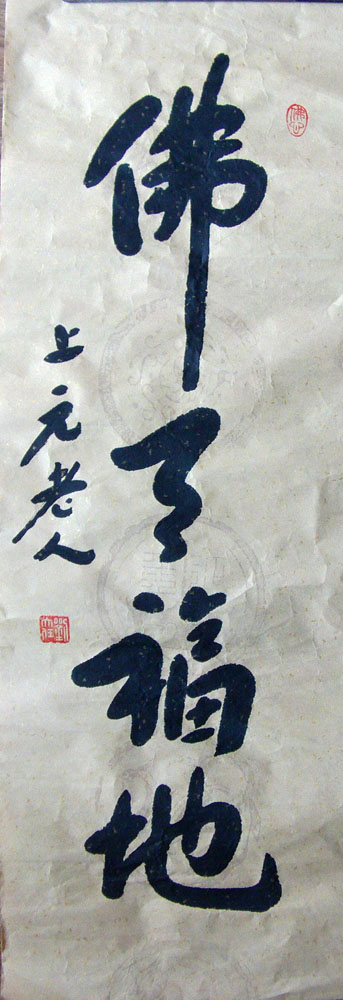 佛天福地
上元老人